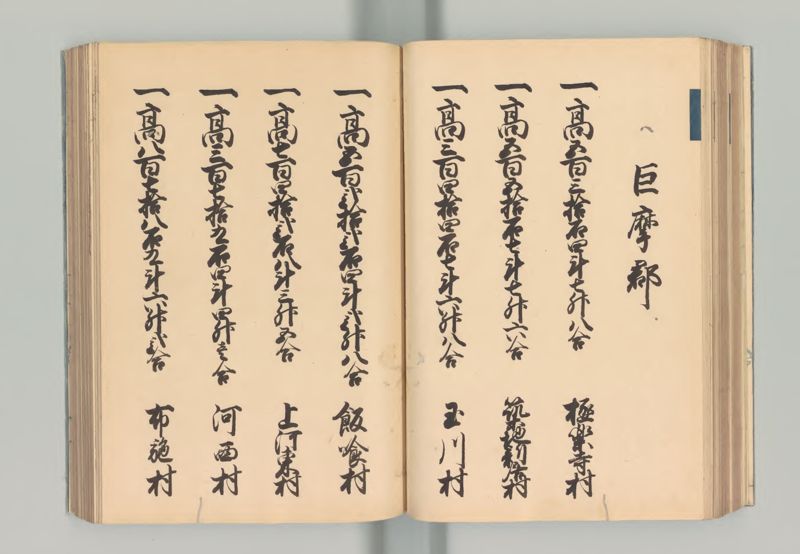 巨摩郡
一高五百三拾石四斗七升八合 極楽寺村
一高五百五拾石七斗七升六合 築地新居村
一高三百四拾四石七斗六升八合 玉川村
一高五百弐拾弐石四斗弐升八合 飯喰村
一高七百四拾弐石八斗三升五合 上河東村
一高三百七拾九石四斗四升壱合 河西村
一高八百七拾八石九斗六升弐合 布施村